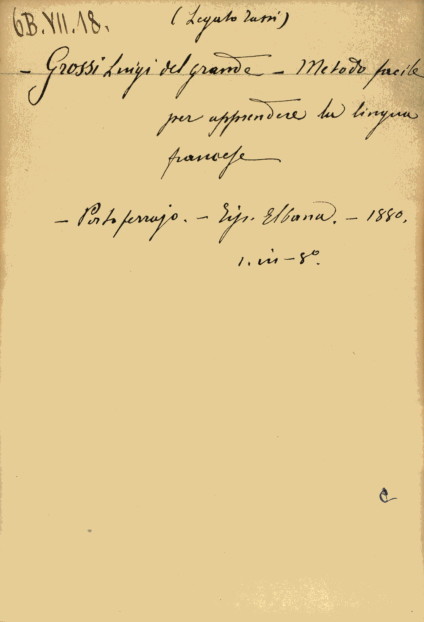 6B.VII.18.
(Legato Tassi)
- Grossi Luigi del grande - Metodo facile
per apprendere la lingua
francese
- Portoferrajo. - Tip. Elbana. - 1880.
1. in - 8º.
C